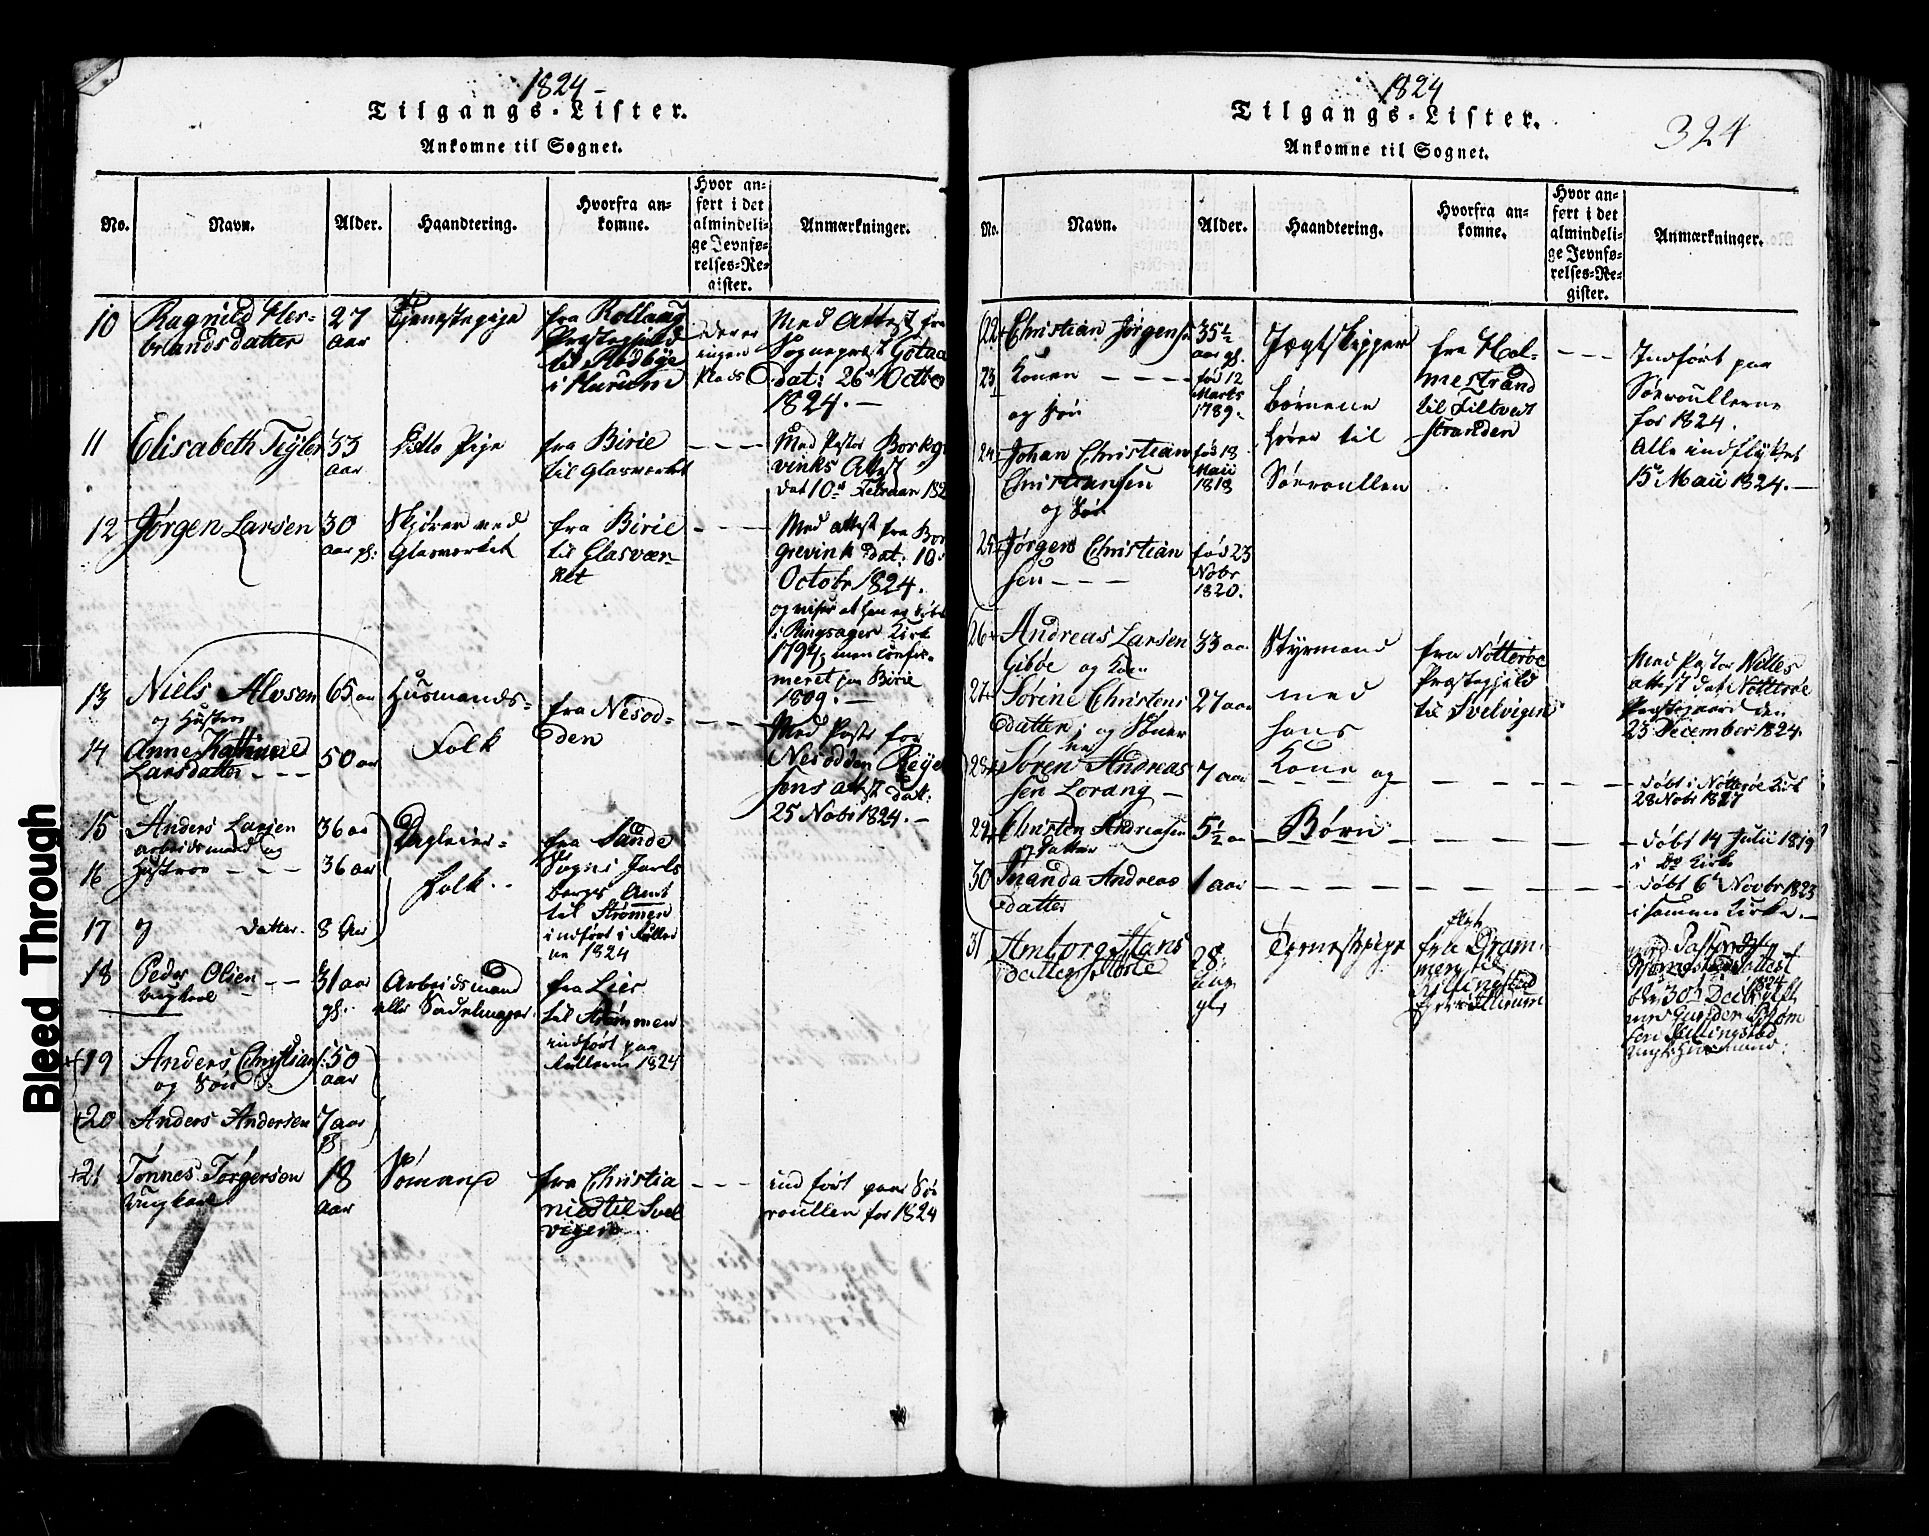 Bleed Through
1824 -
Tilgangs-Lister.
Ankomne til Sognet.
No.
Navn.
Alder.
Haandtering.
Hvorfra an-
komne.
Hvor an-
ført i det
almindeli-
ge Jevnfø-
relses-Re-
gister.
Anmærkninger.
10
Ragnild Her-
brandsdatter
27
aar
Tjenestepige
fra Rollaug
Præstegjeld
til Rødbøe
i Hurum
ingen
Plads
Med Attest fra
Sognepræst
dat: 26 Octbr
1824. -
11
Elisabeth
33
aar
ditto Pige
fra Birie
til Glasværket
- - - -
Med Pastor
vinks Attest
dat 10de Februar
12
Jørgen Larsen
30
aar gl:
ved
Glasværket
fra Birie
til Glasvær-
ket
- - - -
Med attest fra Bor
grevink dat: 10
Octobr 1824.
i Ringsager Kirk
1794; men confir-
meret paa Birie
1809. -
13
Niels Alvsen
og Hustroe
65 aar
Huusmands-
fra Nesod-
den
- - -
Med Pastor for
Nesodden
sens attest dat:
25 Nobr 1824. -
14
Anne Kathrine
Larsdatter - - -
50 aar
Folk
15
Anders Larsen
arbeidsmand og
36 aar
Dagleier-
fra Sande
Sogn i Jarls
berger Amt
til Strømen
indført i Ruller
ne 1824
16
Hustroe - - - -
36 aar
folk. -
17
og datter.
8 aar
18
Peder Olsen - -
Ungkarl
31 aar
gl.
Arbeidsmand
eller Sadelmager.
fra Lier
til Strømmen
indført paa
Rullerne 1824
+19
Anders Christian
og Søn
50
aar
+20
Anders Andersen
7 aar
+21
Tønnes Torgersen
Ungkarl
18
aar
Sømand
fra Christia
nia til Svel
vigen
- - - -
indført paa Søe
roullen for 1824
1824
Tilgangs-Lister.
Ankomne til Sognet.
324
No.
Navn.
Alder.
Haandtering.
Hvorfra an-
komne.
Hvor an-
ført i det
almindeli-
ge Jevnfø-
relses-Re-
gister.
Anmærkninger.
22
Christian Jørgensen
35½
aar gl.
Jægtskipper
fra Hol-
mestrand
til Filtvedt
stranden
- - - -
Indført paa
Søeroullerne
for 1824.
Alle indflyttet
15de Maii 1824. -
23
Konen - - - -
og søn
fød 12
Marts
1789.
børnene
hører til
24
Johan Christian
Christiansen
og Søn
fød 18
Maii
1818
Søeroullen
25
Jørgen Christian
sen - - -
fød 23
Nobr
1820.
26
Andreas Larsen
Gibøe og Kone
33 aar
Styrmand
fra Nøtterøe
Præstegjeld
til Svelvigen
Med Pastor
attest dat Nøtterøe
Præstegaard den
23 December 1824.
27
Sørine Christens
datter; og Sønner
27 aar
med
hans
28
Søren Andreas
sen Lorang -
7 aar
Kone og
- - - - -
døbt i Nøtterøe Kirk
28 Nobr 1817
29
Christen Andreasen
og datter
5½ aar
Børn
- - - - -
døbt 14 Julii 1819
i do Kirke
30
Andreas
datter
1 aar
- - - - - - - -
døbt 6t Novbr 1823
i samme Kirke. -
31
Amborg Hans
datter
28
aar
gl.
Tjenestepige
fra Dram-
men til
Hurum
30t Decbr 1824